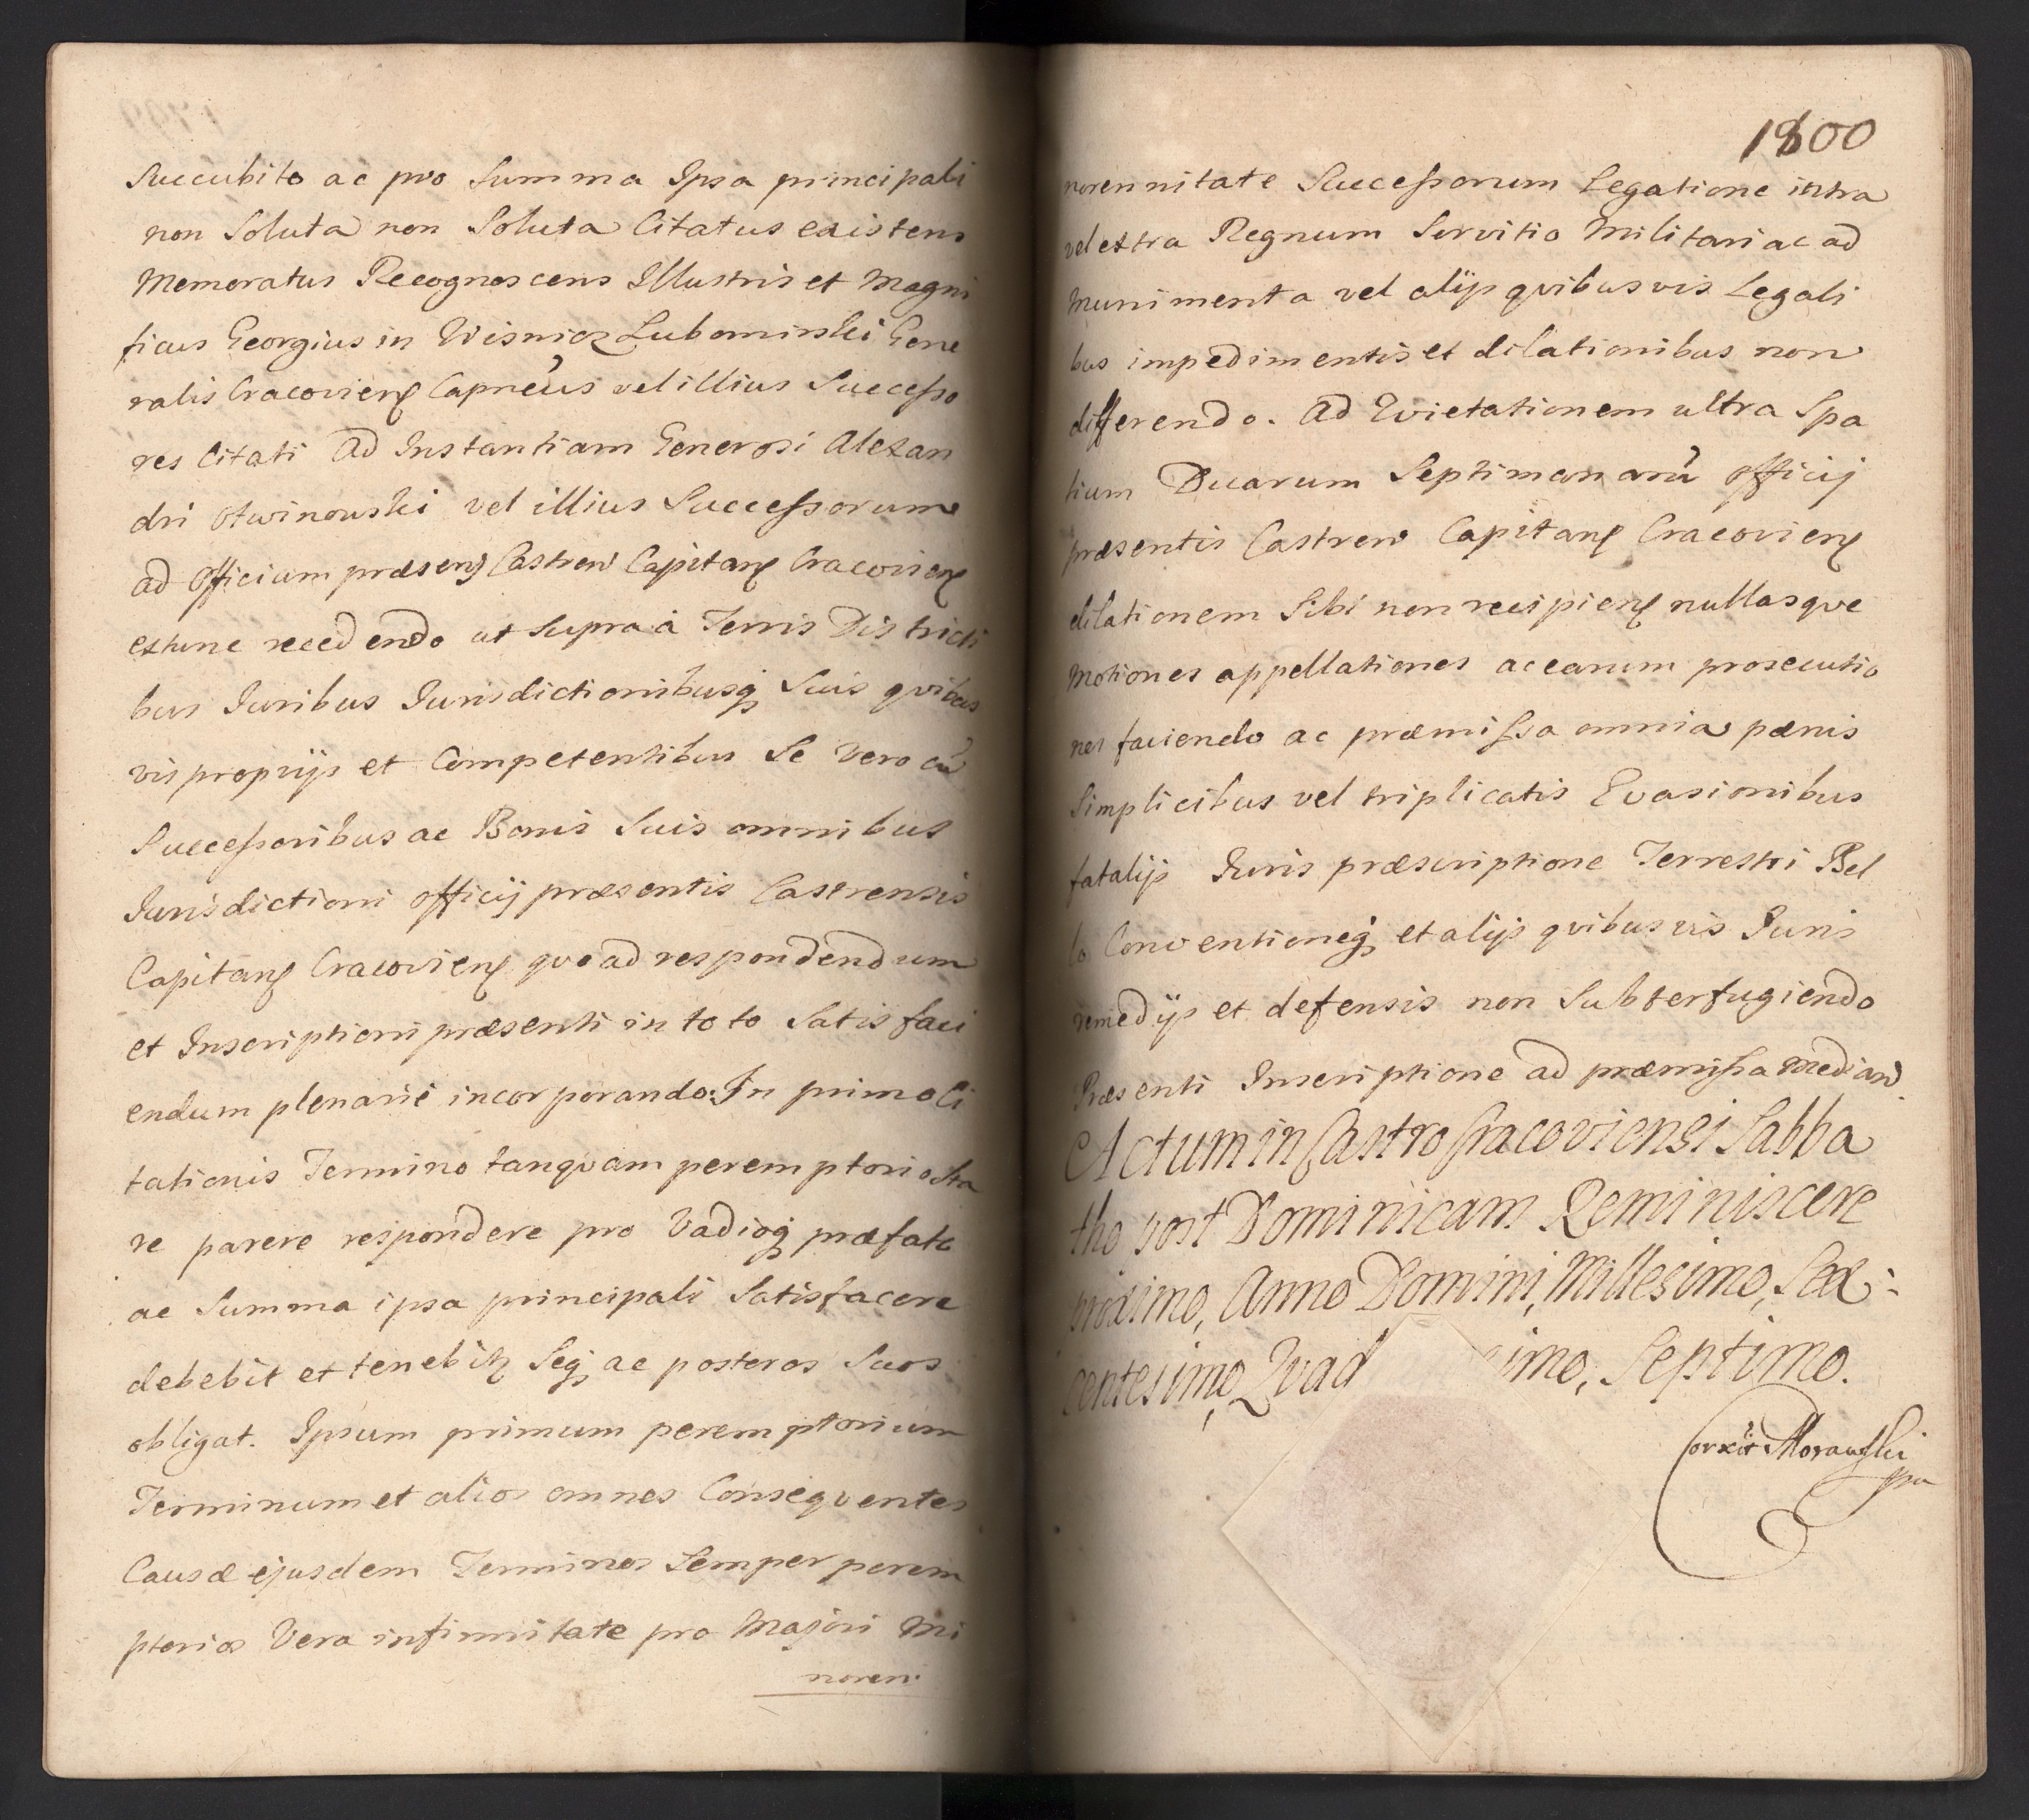 Succubito ac pro Summa Ipsa principali
non Soluta non Soluta Citatus existens
Memoratus Recognoscens Illustris et Magni
ficus Georgius in Wisnicz Lubomirski Gene
ralis Cracovieñ Capneûs vel illius Successo
res Citati Ad Instantiam Generosi Alexan
dri Otwinowski vel illius Successorum
ad Officium præsens Castren Capitanę Cracovienę
extunc recedendo ut Supra à Terris Districti
bus Juribus Jurisdictionibusq Suis qvibus
vis proprijs et Competentibus Se Vero cũ
Successoribus ac Bonis Suis omnibus
Jurisdictioni officij præsentis Castrensis
Capitanę Cracovienę qvoad respondendum
et Inscriptioni præsenti in toto Satisfaci
endum plenarié incorporando. In primo Ci
tationis Termino tanqvam peremptorio Sta
re parere respondere pro Vadioq præfato
ac Summa ipsa principali Satisfacere
debebit et tenebitz Seq ac posteros Suos
obligat. Ipsum primum peremptorium
Terminum et alios omnes Conseqventes
Causæ ejusdem Terminos Semper perem
ptorios Vera infirmitate pro Majori Mi
noren.
1800
norennitate Successorum Legatione intra
vel extra Regnum Servitio Militari ac ad
Munimenta vel alijs qvibusvis Legali
bus impedimentis et dilationibus non
differendo. Ad Evictationem ultra Spa
tium Duarum Septimanarũ Officij
præsentis Castren Capitanę Cracovienę
dilationem Sibi non recipienę nullasqve
Motiones appellationes ac earum prosecutio
nes faciendo ac præmissa omnia pænis
Simplicibus vel triplicatis Evasionibus
fatalijs Juris præscriptione Terrestri Bel
lo Conventioneq et alijs qvibusvis Juris
remedijs et defensis non Subterfugiendo
Præsenti Inscriptione ad præmissa median
Actum in Castro Cracoviensi Sabba
tho post Dominicam Reminiscere
proximo, Anno Domini, Millesimo, Sex:
centesimo, Qvad imo, Septimo.
Corxit Morawski